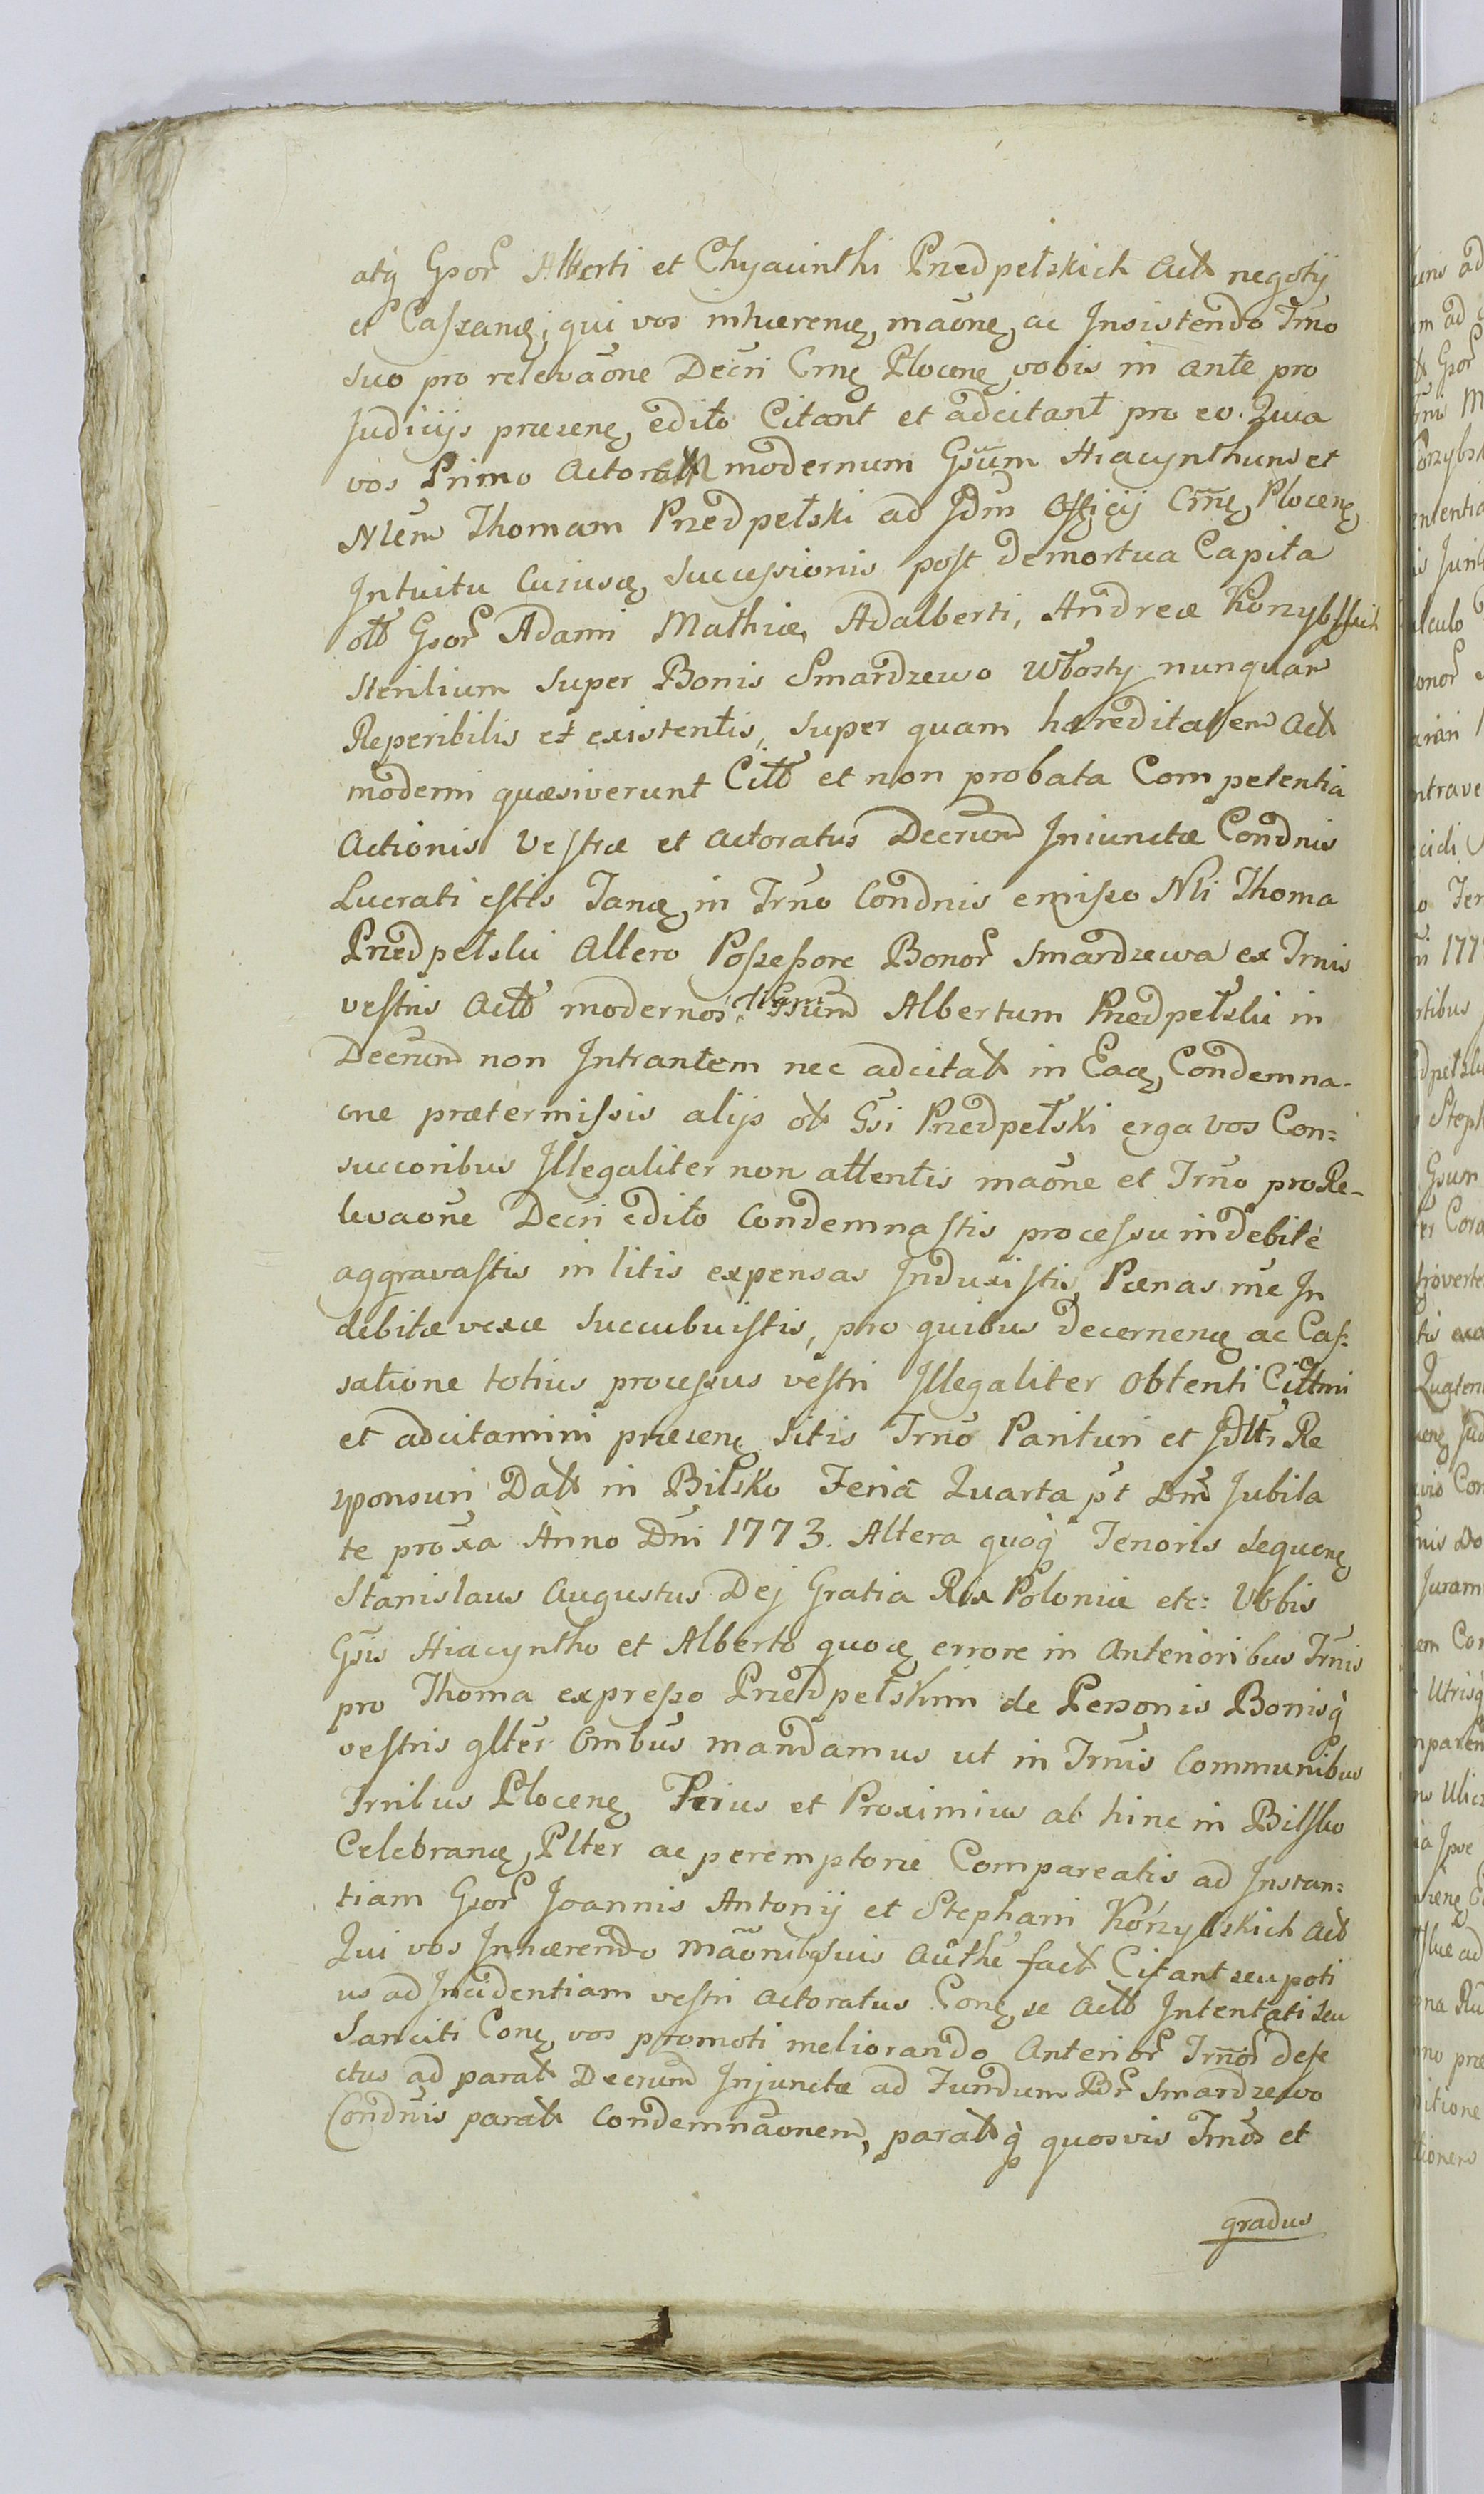 atq̀ Gsor̃ Alberti et Chyacinthi Przedpełskich Actt negotij
et Cassanę, qui vos inhærenę, maõne, ac Insistendo Trño
suo pro relevaõne Decri Crnę Plocenę vobis in ante pro
Judicijs præsenę, edito Citant et adcitant pro eo. Quia
vos Primo Actor modernum Gsũm Hiacynthum et
Nlem Thomam Przedpełski ad Jdm Officij Crñę, Plocenę,
Intuitu Cujusę, successionis post demortua Capita
ott Gsor̃ Adami Mathiæ, Adalberti, Andreæ Korzybskich
sterilium super Bonis Smardzewo Włosty nunquam
Reperibilis et existentis, super quam hæreditatem Actt
moderni quæsiverunt Citt et non probata Competentia
Actionis Vestræ et Actoratus Decrum Iniunctæ Condnis
Lucrati estis Tanę, in Trño Condnis emisso Nli Thoma
Przedpełski Altero Possessore Bonor̃ Smardzewa ex Trnis
vestris Actt modernos, Gsum Albertum Przedpełski in
Decrum non Intrantem nec adcitatt in Eaę, Condemna-
one prætermissis alijs ott Gsi Przedpełski erga vos Con=
succoribus Illegaliter non attentis maõne et Trño pro Re-
levaõne Decri edito Condemnastis processu indebité
aggravastis in litis expensas Induxistis, Pænas rñe In
debitæ vexæ succubuistis, pro quibus decernenę ac Cas=
satione totius processus vestri Illegaliter obtenti Cittmi
et adcitamini præsenę sitis Trño Parituri et Jdtr Re
sponsuri Datt in Bilsko Feriâ Quarta pt Dm̃ Jubila
te proxa Anno Dñi 1773. Altera quoq̀ Tenoris sequenę
Stanislaus Augustus Dej Gratia Rex Poloniæ etc: Vobis
Gsis Hiacyntho et Alberto quoę errore in Anterioribus Trñis
pro Thoma expresso Przedpełskim de Personis Bonisq̀
vestris glter Ombus mandamus ut in Trñis Communibus
Trnibus Plocenę, Prius et Proximius ab hinc in Bilsko
Celebranę, Plter ac peremptorie Compareatis ad Instan=
tiam Gsor̃ Joannis Antonij et Stephani Korzybskich Actt
Qui vos Inhærendo Maõnibq suis Authe factt Citant seu poti
us ad Incidentiam vestri Actoratus Conę, se Actt Intentati seu
Sanciti Conę, vos promoti meliorando Anterior̃ Trñor̃ defe
ctus ad paratt Decrum Injunctæ ad Fundum Br̃ Smardzewo
Condñis paratt Condemnaõnem, parattq̀ quosvis Trños et
gradus